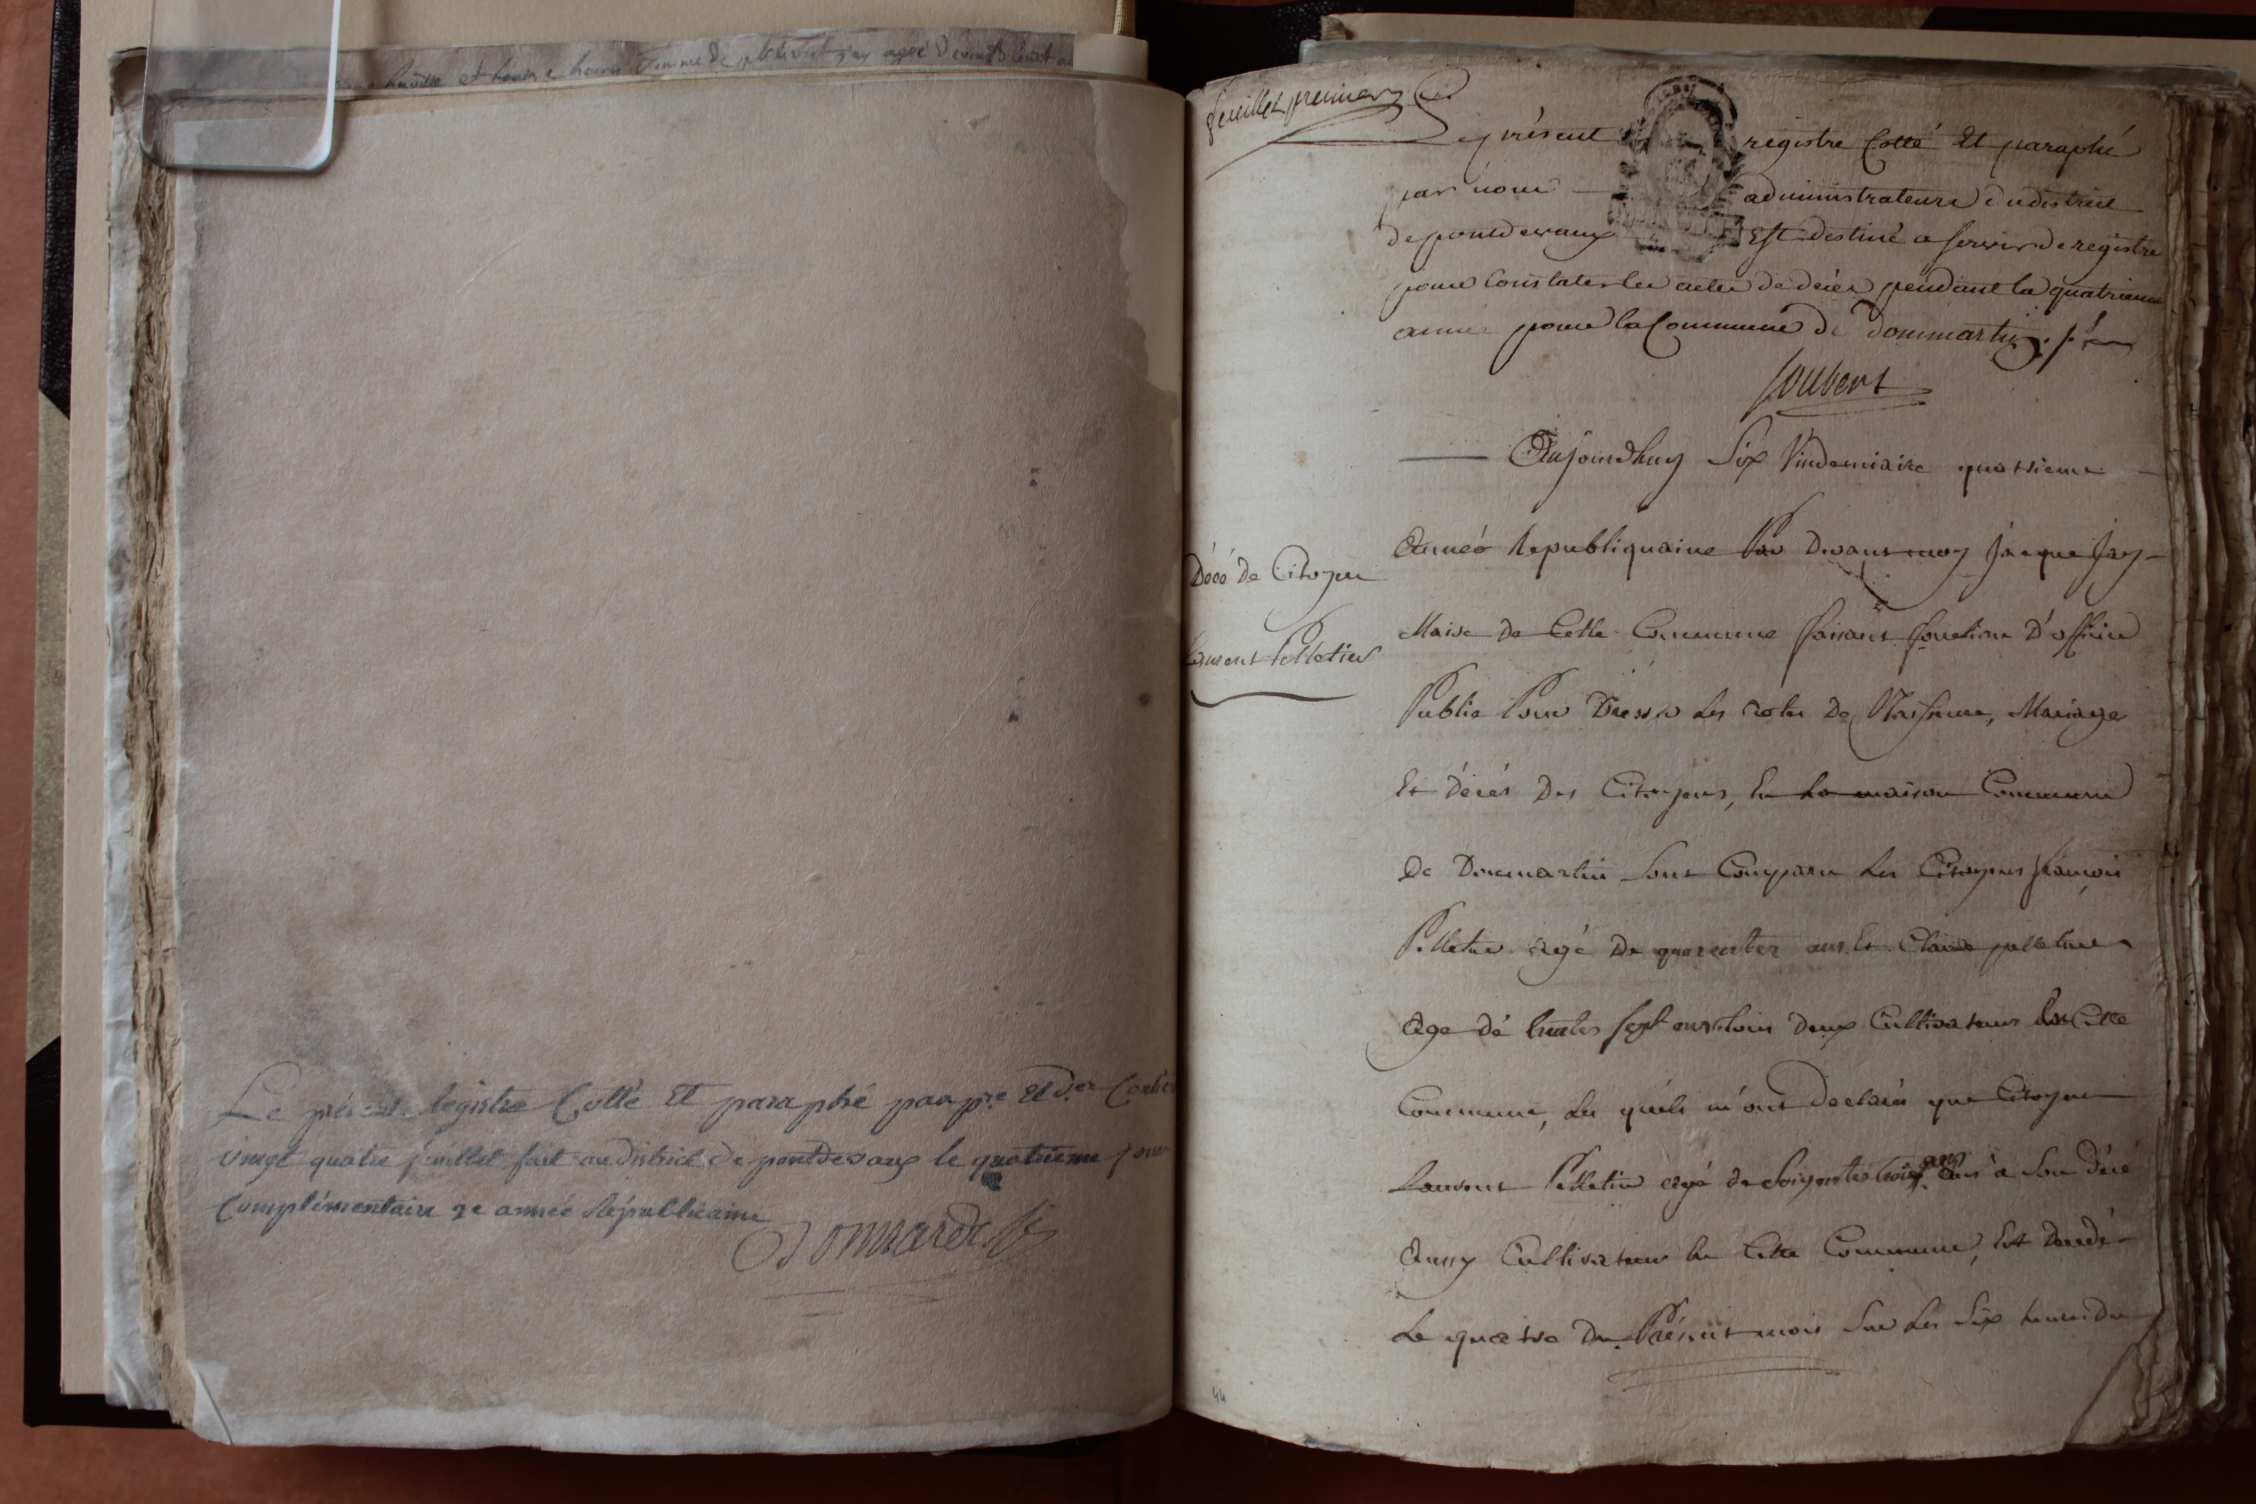 Le présent registre Cotté Et paraphé par pre. Et der.
vingt quatre feuillet fait au district de pontdevaux le quatrieme jour
Complémentaire 2e année Républicaine
feuillet premier
Le présent registre Cotté Et paraphé
par nous administrateurs du district
de pontdevaux Est destiné a servir de registre
pour Constater les actes de décès pendant la quatrieme
année pour la Commune de dommartin
Joubert
Aujourdhuy Six Vindemiaire quatrieme
Décé de Citoyen
Laurent Pelletier
Anneé Republiquaine Par Devant moy Jacque Jay
Maire de Cette Commune faisant fonction D'officier
Public Pour Dresser Les actes De Naissance, Mariage
Et décés Des Citoyens, En La maison Commune
De Dommartin Sont Comparu Les Citoyens françois
Pelletier agé De quarente ans Et Claude pelletier
Age dé trentes sept ans tous deux Cultivateurs En Cette
Commune, Les quels m'ont Déclarés que Citoyen
Laurent Pelletier agé de Soixantes trois ans à Son Décé
Aussy Cultivateur En Cette Commune, Est Décédé
Le quatre Du Présent mois Sur Les Six heures Du
44